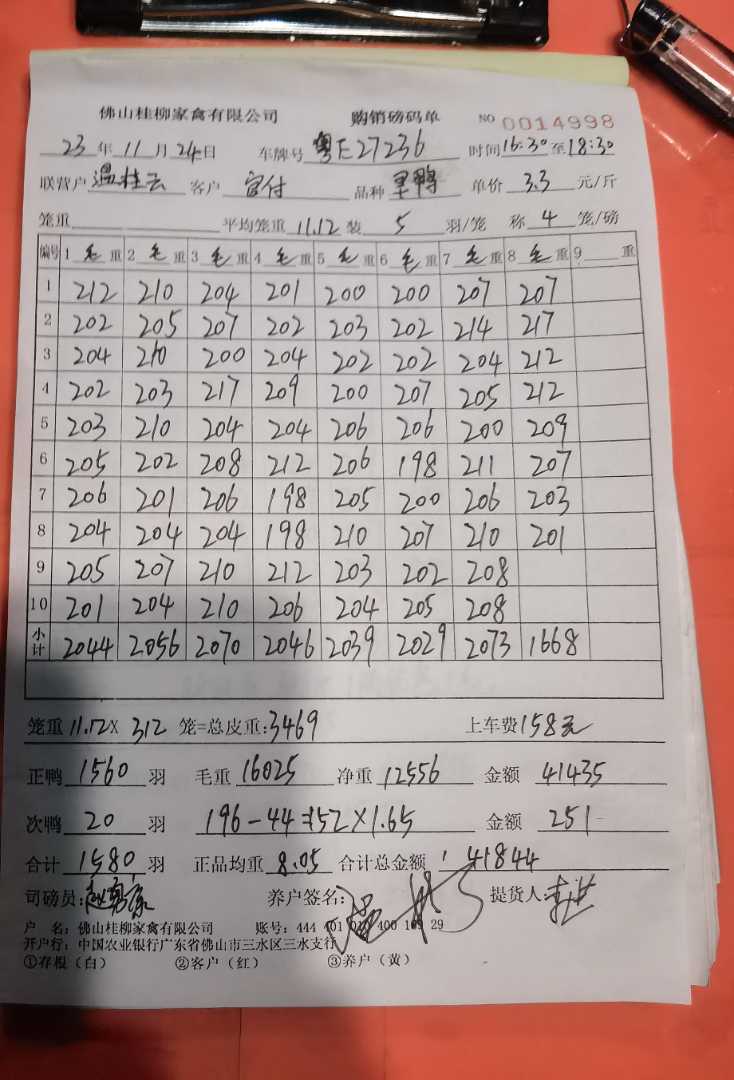 佛山桂柳家禽有限公司 购销磅码单 NO 0014998
23 年 11 月 24 日 车牌号 粤E27236 时间 16:30 至 18:30
联营户 温桂云 客户 宫付 品种 单价 3.3 元/斤
笼重 平均笼重 11.12 装 5 羽/笼 称 4 笼/磅
编号 1 毛 重 2 毛 重 3 毛 重 4 毛 重 5 毛 重 6 毛 重 7 毛 重 8 毛 重 9 重
1 212 210 204 201 200 200 207 207
2 202 205 207 202 203 202 214 217
3 204 210 200 204 202 202 204 212
4 202 203 217 209 200 207 205 212
5 203 210 204 204 206 206 200 209
6 205 202 208 212 206 198 211 207
7 206 201 206 198 205 200 206 203
8 204 204 204 198 210 207 210 201
9 205 207 210 212 203 202 208
10 201 204 210 206 204 205 208
小计 2044 2056 2070 2046 2039 2029 2073 1668
笼重 11.12X 312 笼=总皮重:3469 上车费 158元
正鸭 1560 羽 毛重 16025 净重 12556 金额 41435
次鸭 20 羽 196-44=152×1.65 金额 251
合计 1580 羽 正品均重 8.05 合计总金额 41844
司磅员: 养户签名: 提货人:
户 名: 佛山桂柳家禽有限公司 账号: 444 401 400 109 29
开户行: 中国农业银行广东省佛山市三水区三水支行
①存根(白) ②客户(红) ③养户(黄)